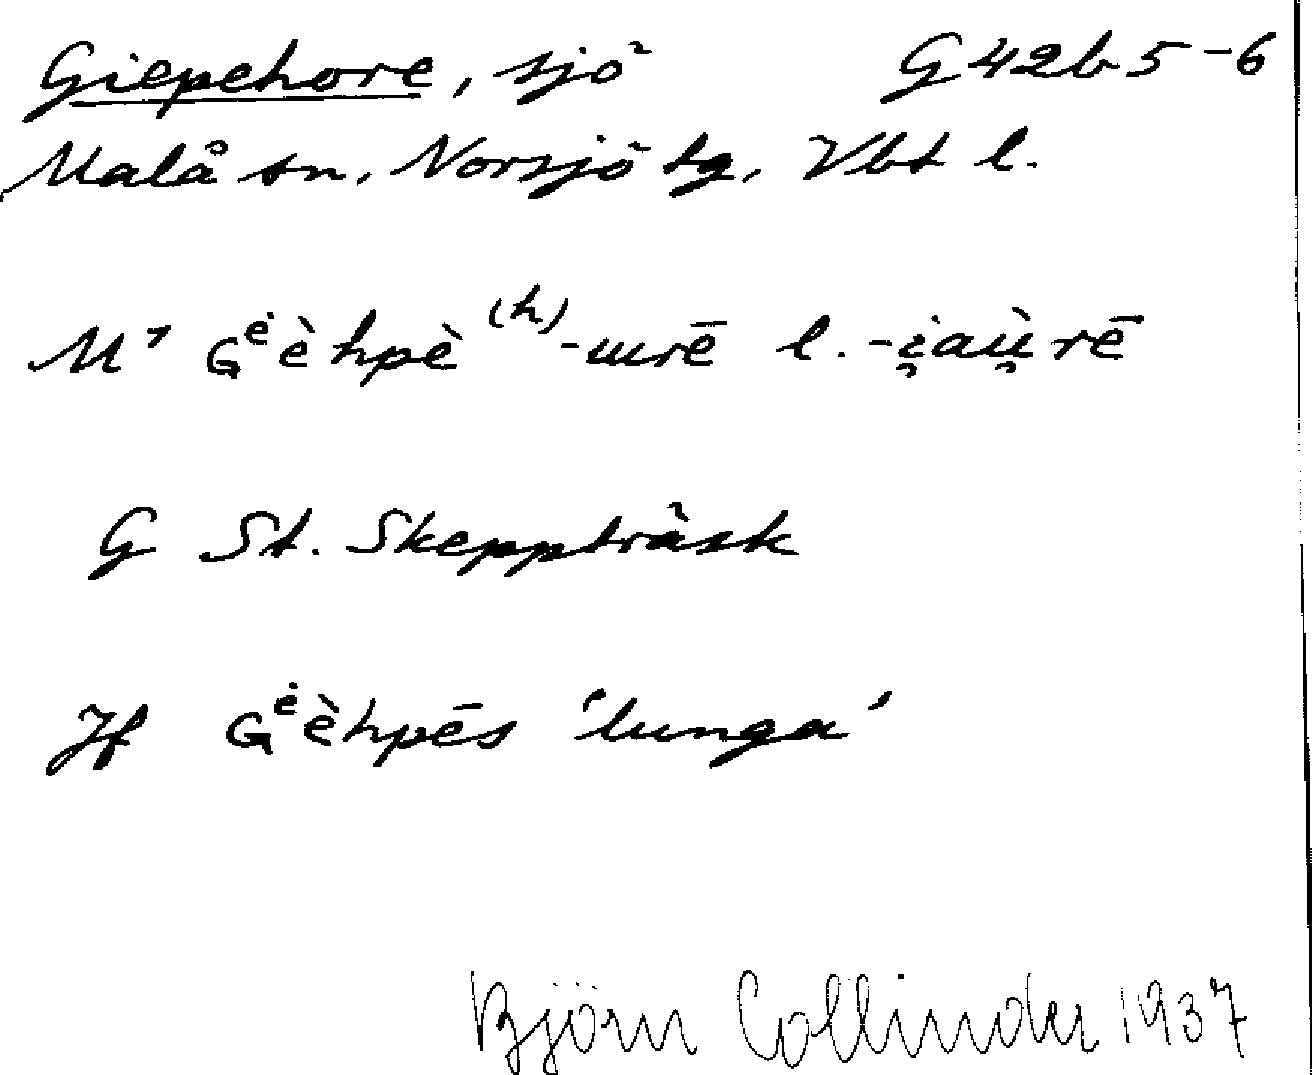 Giepehore, sjö G42b5-6
Malå sn. Norsjö tg. Vbt l.
M1 Gėèhpè(h)-ɯrē l. -i̯aù̯rē
G St. Skeppträsk
Jf Gėèhpēs 'lunga'
Björn Collinder 1937